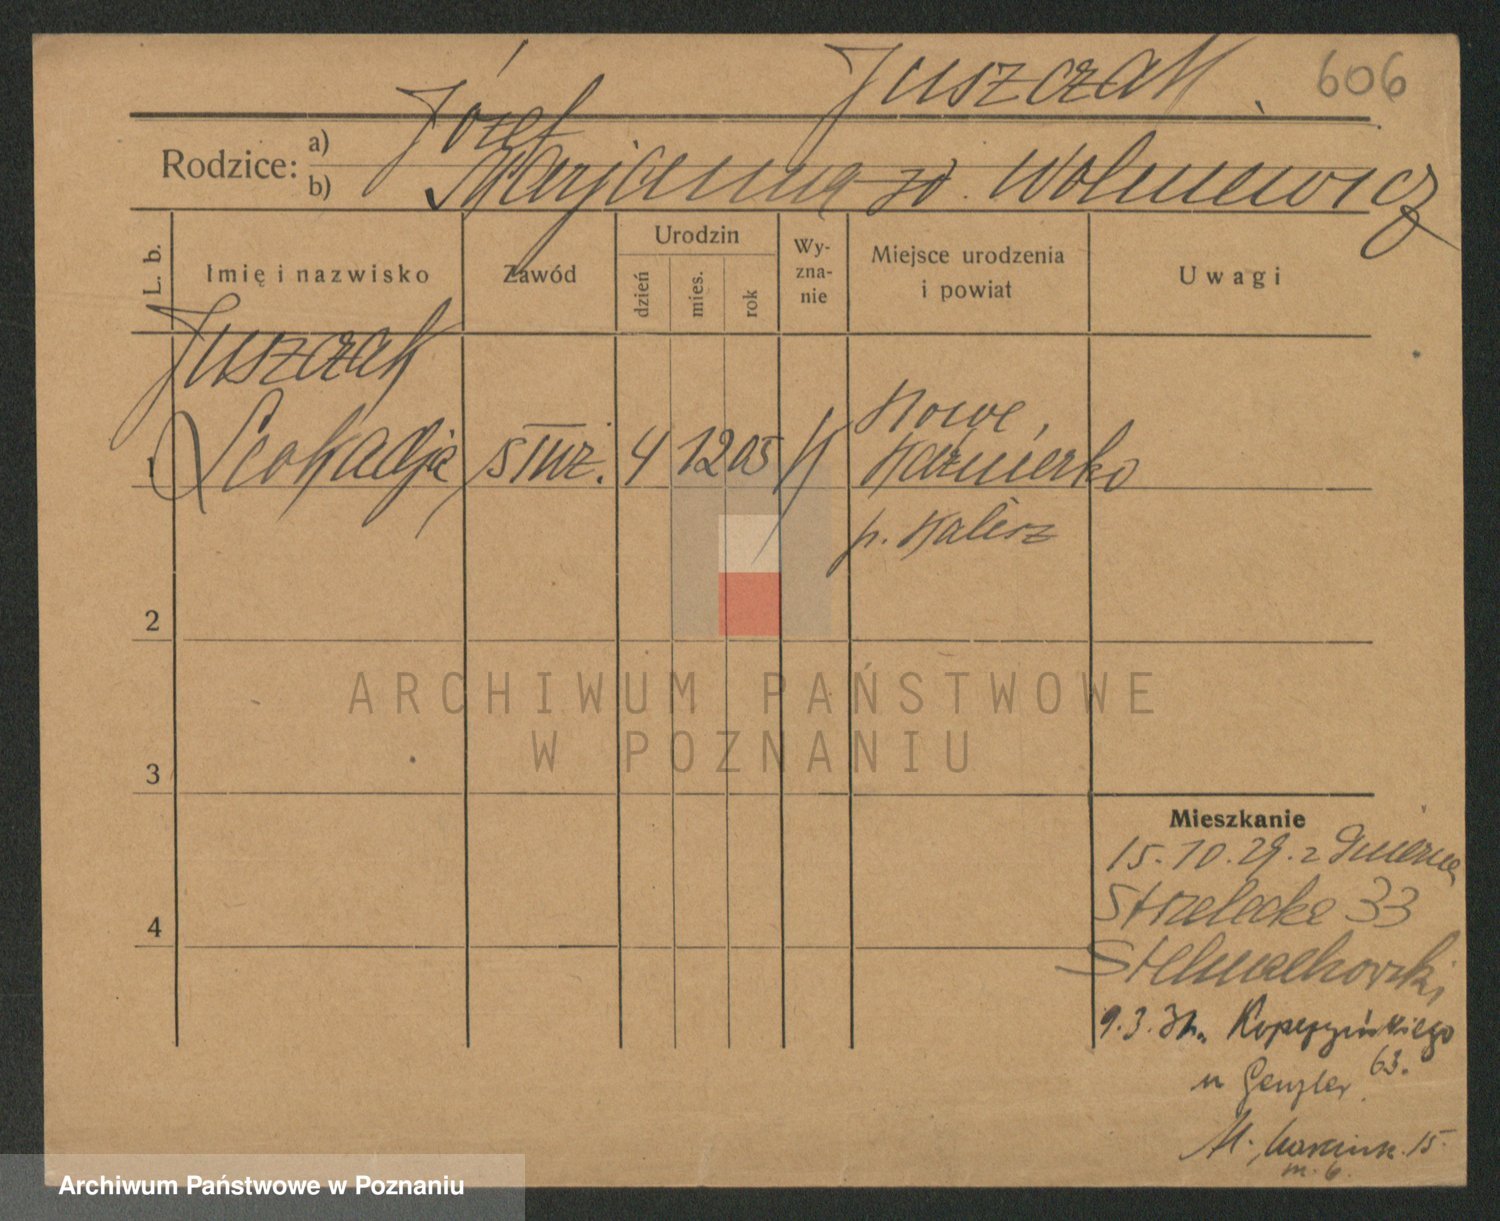 Juszczak 606
Rodzice: a) Józef
b) Marjanna zd. Wolniewicz
L. b. Imię i nazwisko Zawód Urodzin dzień mies. rok Wy-zna-nie Miejsce urodzenia i powiat Uwagi
Juszczak
1 Leokadja służ. 4 12 05 K Nowe
Kaźmierko
p. Kalisz
2
ARCHIWUM PAŃSTWOWE
W POZNANIU
3
Mieszkanie
15.10.29. z
Strzelecka 33
4 Stelmachowski
9.3.31. Kopczyńskiego
63.
u Genzler
M. 15
m. 6.
Archiwum Państwowe w Poznaniu